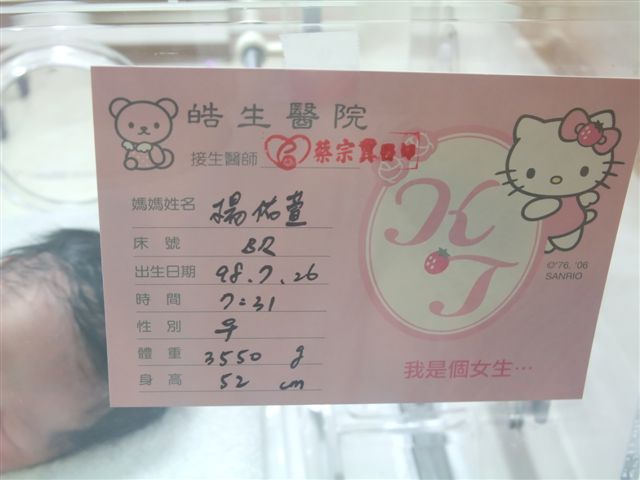 皓生醫院
接生醫師 蔡宗
媽媽姓名 楊佑萱
床號 BR
出生日期 98.7.26
時間 7:31
性別 ♀
體重 3550 g
身高 52 cm
K
T
©'76, '06
SANRIO
我是個女生…